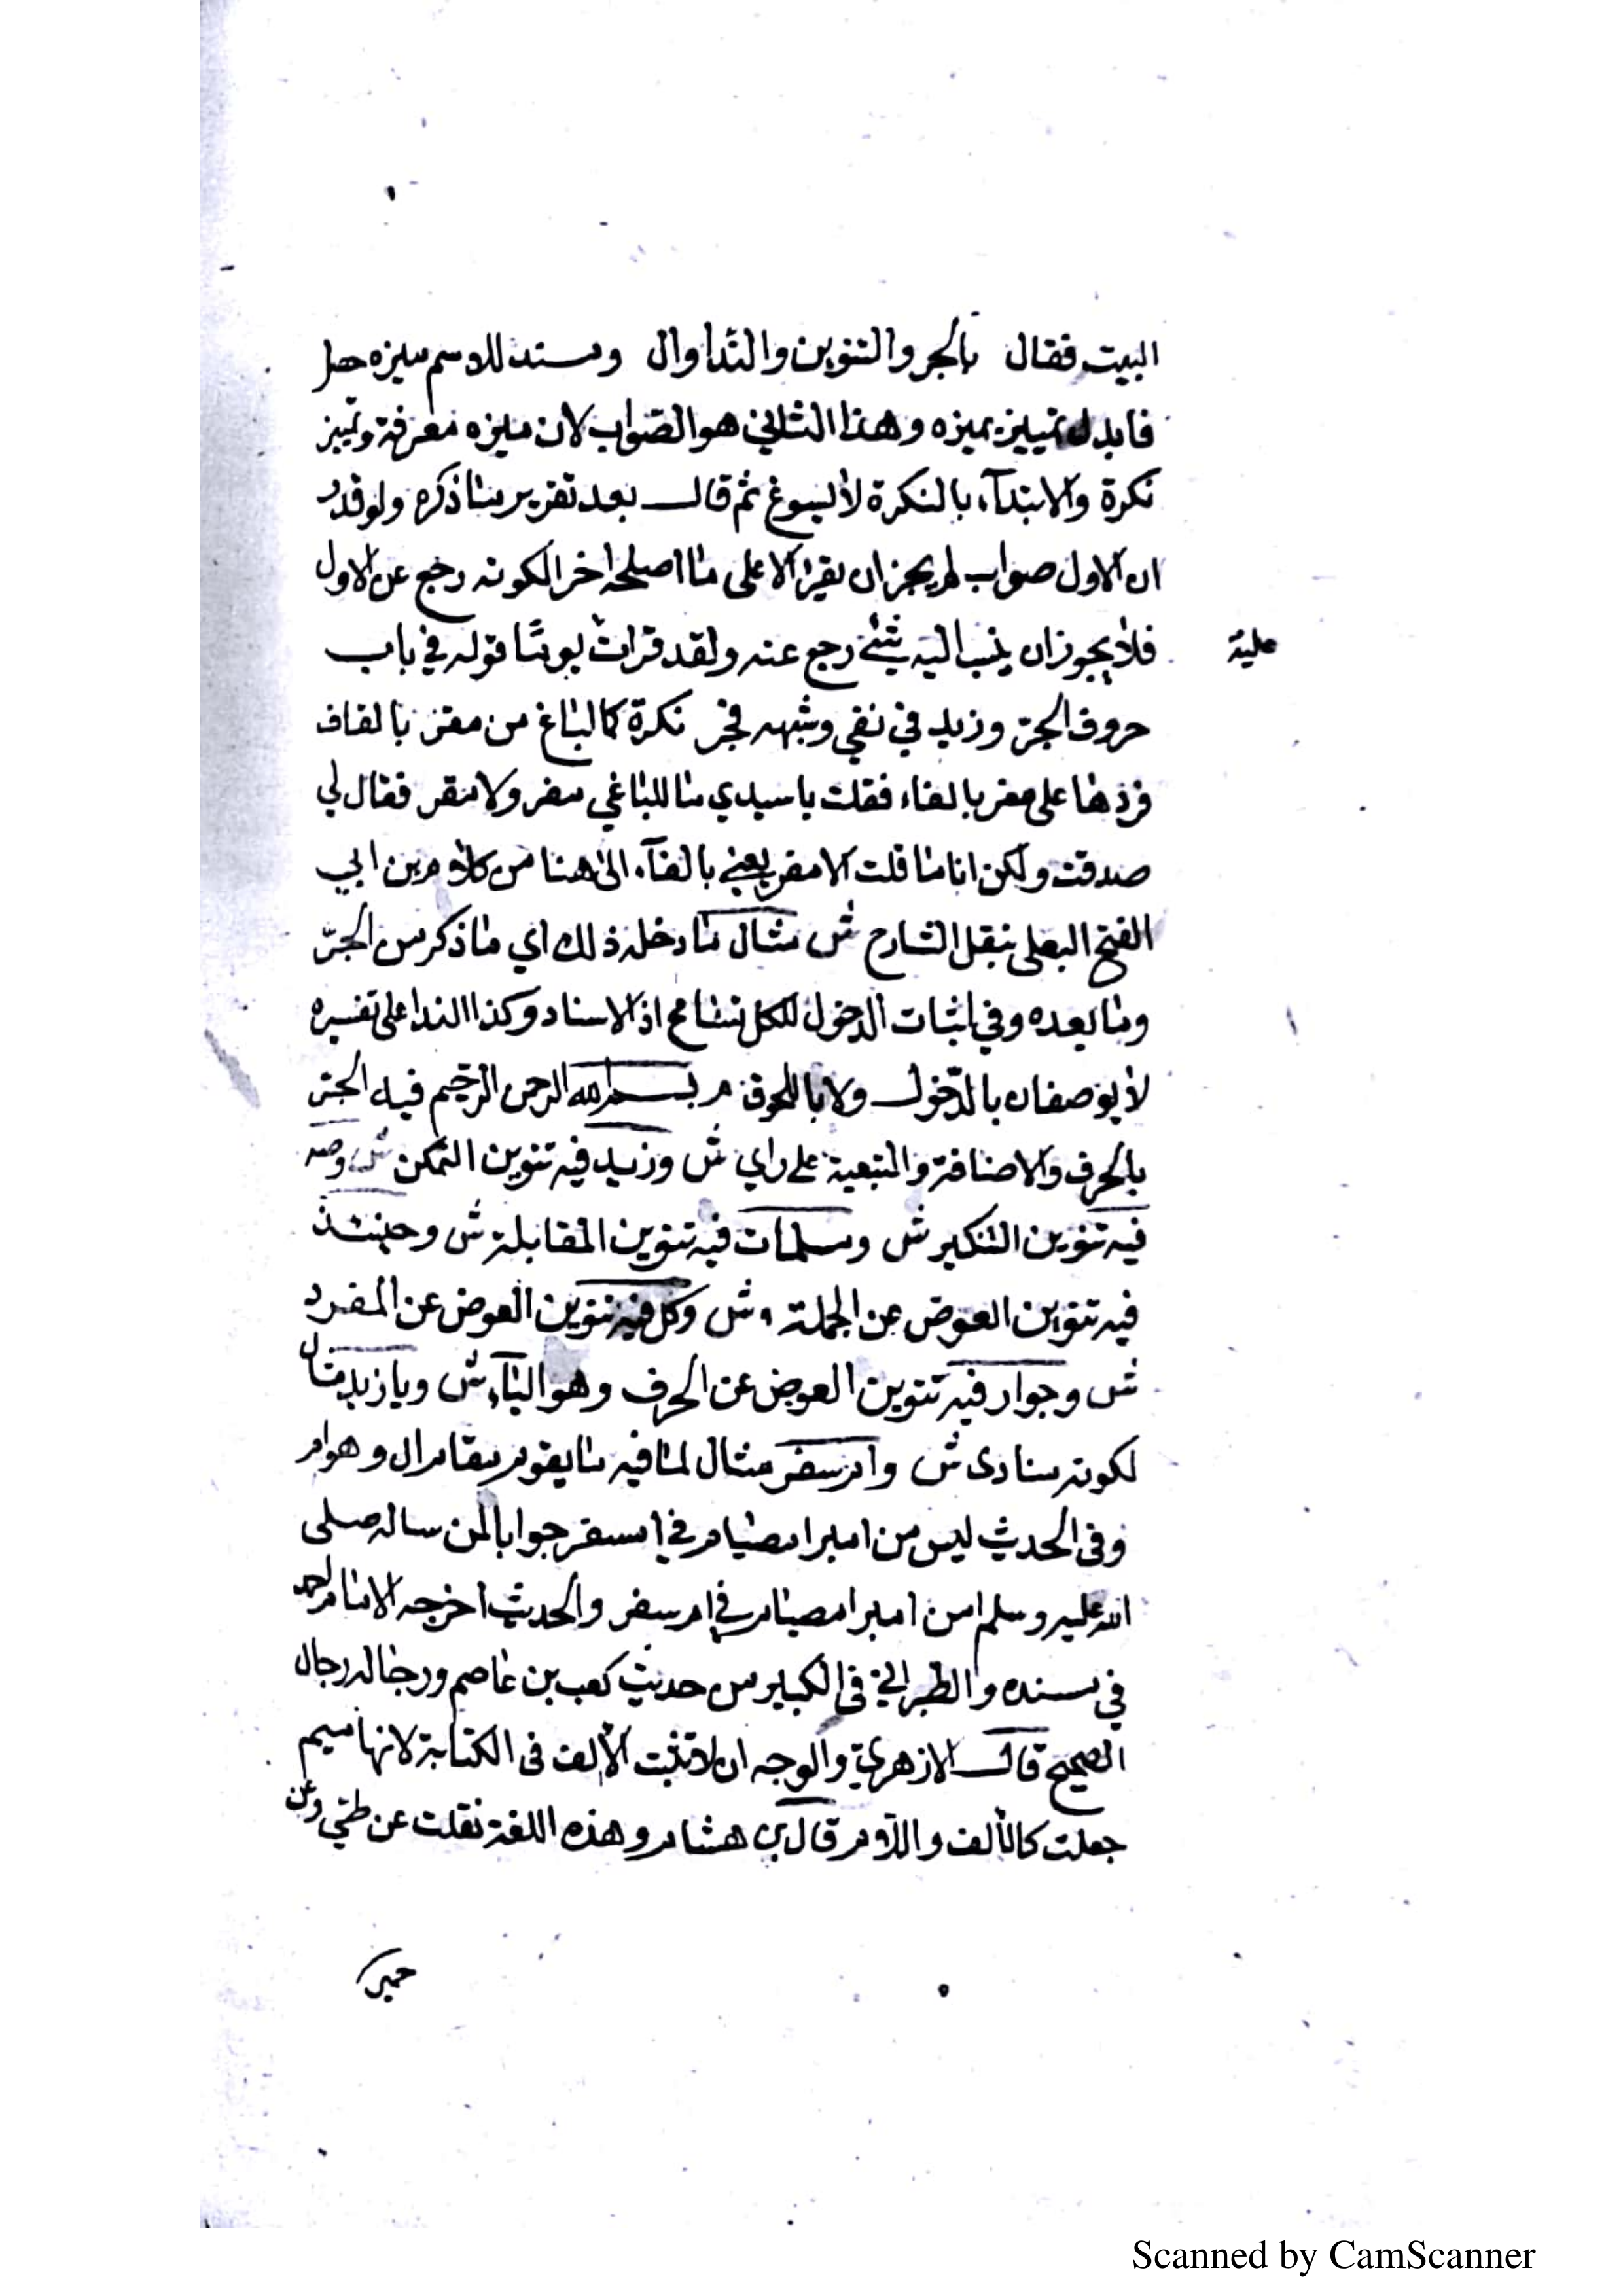 البيت فقال بالجر والتنوين والندا وال ومسند للاسم ميزه حصل
فابدل تمييز بميزه وهذا الثاني هو الصواب لان ميزه معرفة وتمييز
نكرة والابتدآء بالنكرة لا يسوغ ثم قال بعد تقرير ما ذكره ولو قدر
ان الاول صواب لم يجز ان يقرا الا على ما اصلحه اخرا لكونه رجع عن الاول
فلا يجوز ان ينسب اليه شئ رجع عنه ولقد قرات يوما قوله في باب
عليه
حروف الجر وزيد في نفي وشبهه فجر نكرة كما لباغ من مقر بالقاف
فردها على مفر بالفاء فقلت يا سيدي ما للباغي مفر ولا مقر فقال لي
صدقت ولكن انا ما قلت الا مفر يعني بالفآء الى هنا من كلام بن ابي
الفتح البعلى بنقل الشارح ش مثال ما دخله ذلك اي ما ذكر من الجر
وما بعده وفي اثبات الدخول للكل تسامح اذ الاسناد وكذا الندا على تفسيره
لا يوصفان بالدخول ولا باللحوق م بسم الله الرحمن الرحيم فيه الجر
بالحرف والاضافة والتبعية على راي ش وزيد فيه تنوين التمكن ش وصه
فيه تنوين التنكير ش ومسلمات فيه تنوين المقابلة ش وحينئذ
فيه تنوين العوض عن الجملة ش وكل فيه تنوين العوض عن المفرد
ش وجوار فيه تنوين العوض عن الحرف وهو اليآء ش ويا زيد مثال
لكونه منادى ش وام سفر مثال لما فيه ما يقوم مقام ال وهو ام
وفى الحديث ليس من امبر امصيام في امسفر جوابا لمن ساله صلى
الله عليه وسلم امن امبر امصيام في ام سفر والحديث اخرجه الامام احمد
في مسنده والطبراني فى الكبير من حديث كعب بن عاصم ورجاله رجال
الصحيح قال الازهري والوجه ان لا تثبت الالف فى الكتابة لانها ميم
جعلت كالالف واللام قال بن هشام وهذه اللغة نقلت عن طئ وعن
حمير
Scanned by CamScanner